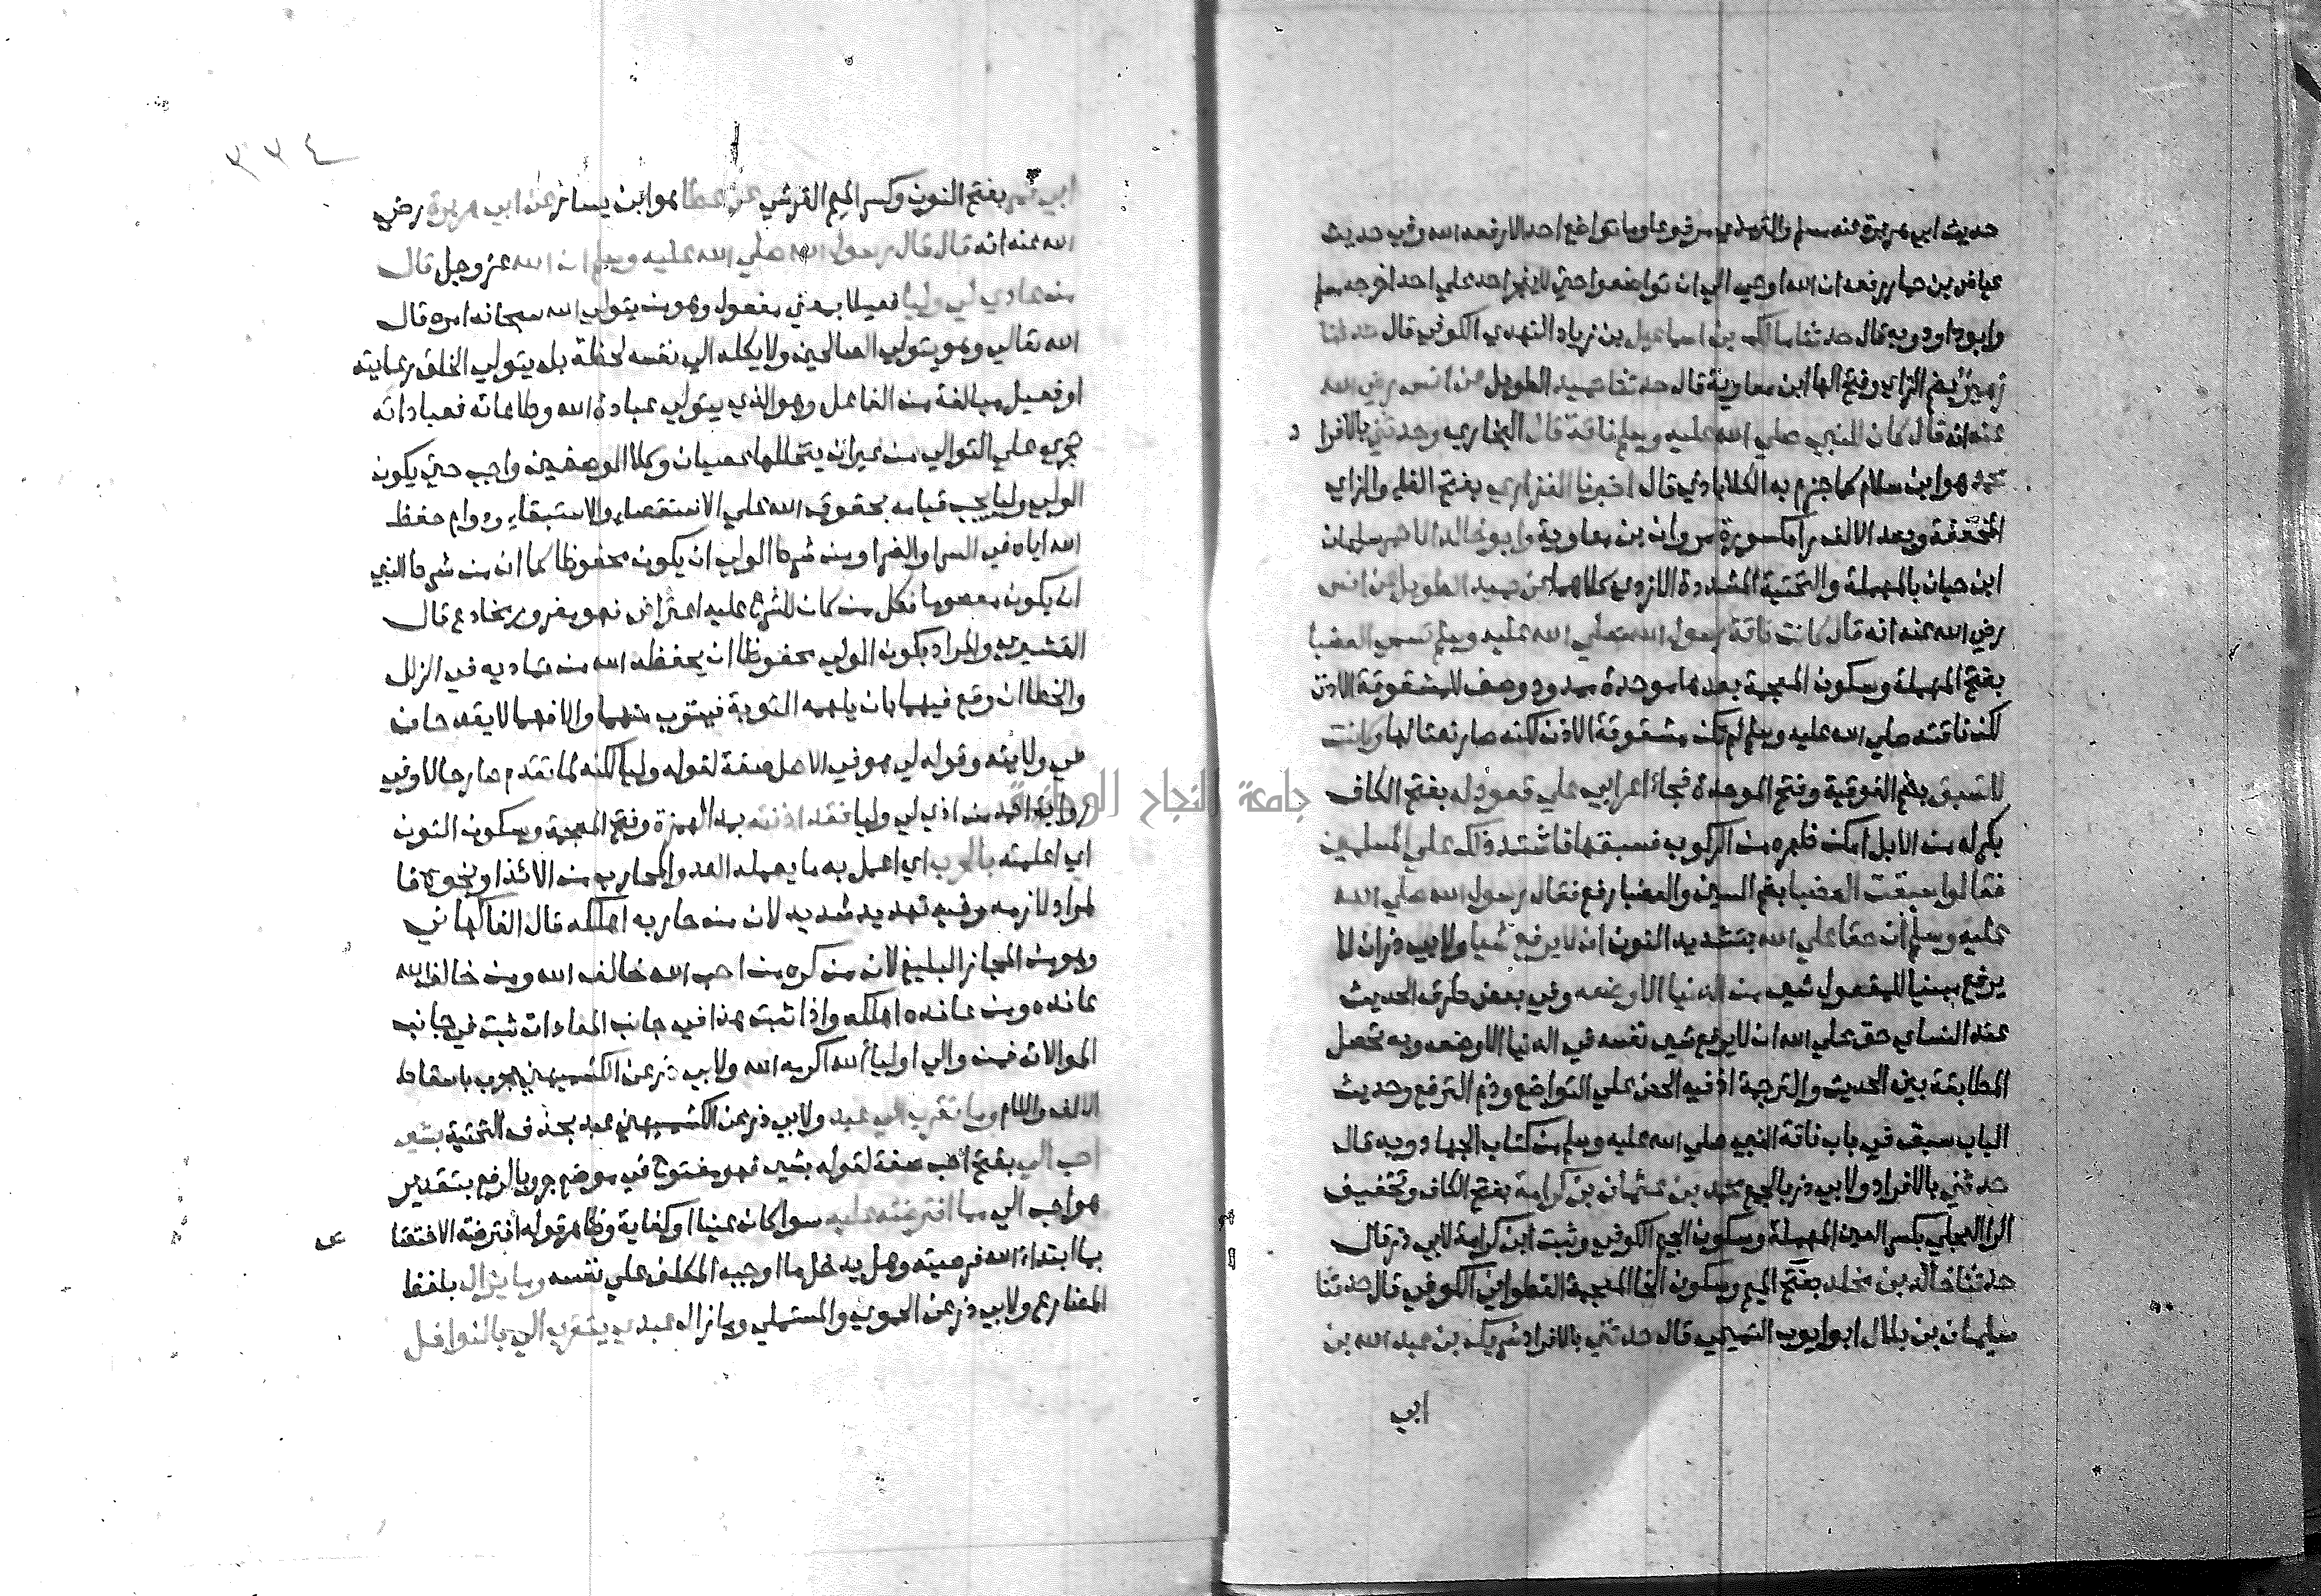 حديث ابي هريرة عند مسلم والترمذي مرفوعا وما تواضع احد الا رفعه الله وفي حديث
عياض بن حمار رفعه ان الله اوحي الي ان تواضعوا حتي لا يفخر احد علي احد اخرجه مسلم
وابو داود وبه قال حدثنا مالك بن اسماعيل بن زياد النهدي الكوفي قال حدثنا
زهير بضم الزاي وفتح الها ابن معاوية قال حدثنا حميد الطويل عن انس رضي الله
عنه انه قال كان للنبي صلي الله عليه وسلم ناقة قال البخاري وحدثني بالافرا
د
محمد هو ابن سلام كما جزم به الكلاباذي قال اخبرنا الفزاري بفتح الفاء والزاي
المخففة وبعد الالف را مكسورة مروان بن معاوية وابو خالد الاحمر سليمان
ابن حيان بالمهملة والتحتية المشددة الازدي كلاهما عن حميد الطويل عن انس
رضي الله عنه انه قال كانت ناقة لرسول الله صلي الله عليه وسلم تسمي العضبا
بفتح المهملة وسكون المعجمة بعدها موحدة ممدود وصف للمشقوقة الاذن
لكن ناقته صلي الله عليه وسلم لم تكن مشقوقة الاذن لكنه صار نعتا لها وكانت
لا تسبق بضم الفوقية وفتح الموحدة فجاء اعرابي علي قعود له بفتح القاف
بكر له من الابل امكن ظهره من الركوب فسبقها فاشتد ذلك علي المسلمين
فقالوا سبقت العضبا بضم السين والعضبا رفع فقال رسول الله صلي الله
عليه وسلم ان حقا علي الله بتشديد النون ان لا يرفع شيا ولابي ذر ان لا
يرفع مبنيا للمفعول شي من الدنيا الا وضعه وفي بعض طرق الحديث
عند النساي حق علي الله ان لا يرفع شي نفسه في الدنيا الا وضعه وبه تحصل
المطابقة بين الحديث والترجمة اذ فيه الحض علي التواضع وذم الترفع وحديث
الباب سبق في باب ناقة النبي صلي الله عليه وسلم من كتاب الجهاد وبه قال
حدثني بالافراد ولابي ذر بالجمع محمد بن عثمان بن كرامة بفتح الكاف وتخفيف
الرا العجلي بكسر العين المهملة وسكون الجيم الكوفي وثبت ابن كرامة لابي ذر قال
حدثنا خالد بن مخلد بفتح الميم وسكون الخا المعجمة القطواني الكوفي قال حدثنا
سليمان بن بلال ابو ايوب التيمي قال حدثني بالافراد شريك بن عبد الله بن
ابي
٣٣٤
ابي نمر بفتح النون وكسر الميم القرشي عن عطا هو ابن يسار عن ابي هريرة رضي
الله عنه انه قال قال رسول الله صلي الله عليه وسلم ان الله عز وجل قال
من عادي لي وليا فعيلا بمعني مفعول وهو من يتولي الله سبحانه امره قال
الله تعالي وهو يتولي الصالحين ولا يكله الي نفسه لحظة بل يتولي الحق رعايته
او فعيل مبالغة من الفاعل وهو الذي يتولي عبادة الله وطاعاته فعباداته
تجري علي التوالي من غير ان يتخللها عصيان وكلا الوصفين واجب حتي يكون
الولي وليا يجب قيامه بحقوق الله علي الاستقصاء والاستبقاء ودوام حفظ
الله اياه في السرا والضرا ومن شرط الولي ان يكون محفوظا كما ان من شرط النبي
ان يكون معصوما فكل من كان للشرع عليه اعتراض فهو مغرور مخادع قال
القشيري والمراد بكون الولي محفوظا ان يحفظه الله من تماديه في الزلل
والخطا ان وقع فيهما بان يلهمه التوبة فيتوب منهما والا فهما لا يقدحان
في ولايته وقوله لي هو في الاصل صفة لقوله وليا لكنه لما تقدم صار حالا وفي
رواية احمد من اذي لي وليا فقد اذنته بمد الهمزة وفتح المعجمة وسكون النون
اي اعلمته بالحرب اي اعمل به ما يعمله العدو المحارب من الائذا ونحوه فا
لمراد لازمه وفيه تهديد شديد لان من حاربه اهلكه قال الفاكهاني
وهو من المجاز البليغ لان من كره من احب الله خالف الله ومن خالف الله
عانده ومن عانده اهلكه واذا ثبت هذا في جانب المعادات ثبت في جانب
الموالاة فمن والي اوليا الله اكرمه الله ولابي ذر عن الكشميهني بحرب باسقاط
الالف واللام وما تقرب الي عبد ولابي ذر عن الكشميهني عبد بحذف التحتية بشي
احب الي بفتح احب صفة لقوله بشي فهو مفتوح في موضع جر وبالرفع بتقدير
هو احب الي مما افترضته عليه سوا كان عينا او كفاية وظاهر قوله افترضته الاختصا
ص
بما ابتداء الله فرضيته وهل يدخل ما اوجبه المكلف علي نفسه وما يزال بلفظ
المضارع ولابي ذر عن الحموي والمستملي وما زال عبدي يتقرب الي بالنوافل
جامعة النجاح الوطنية